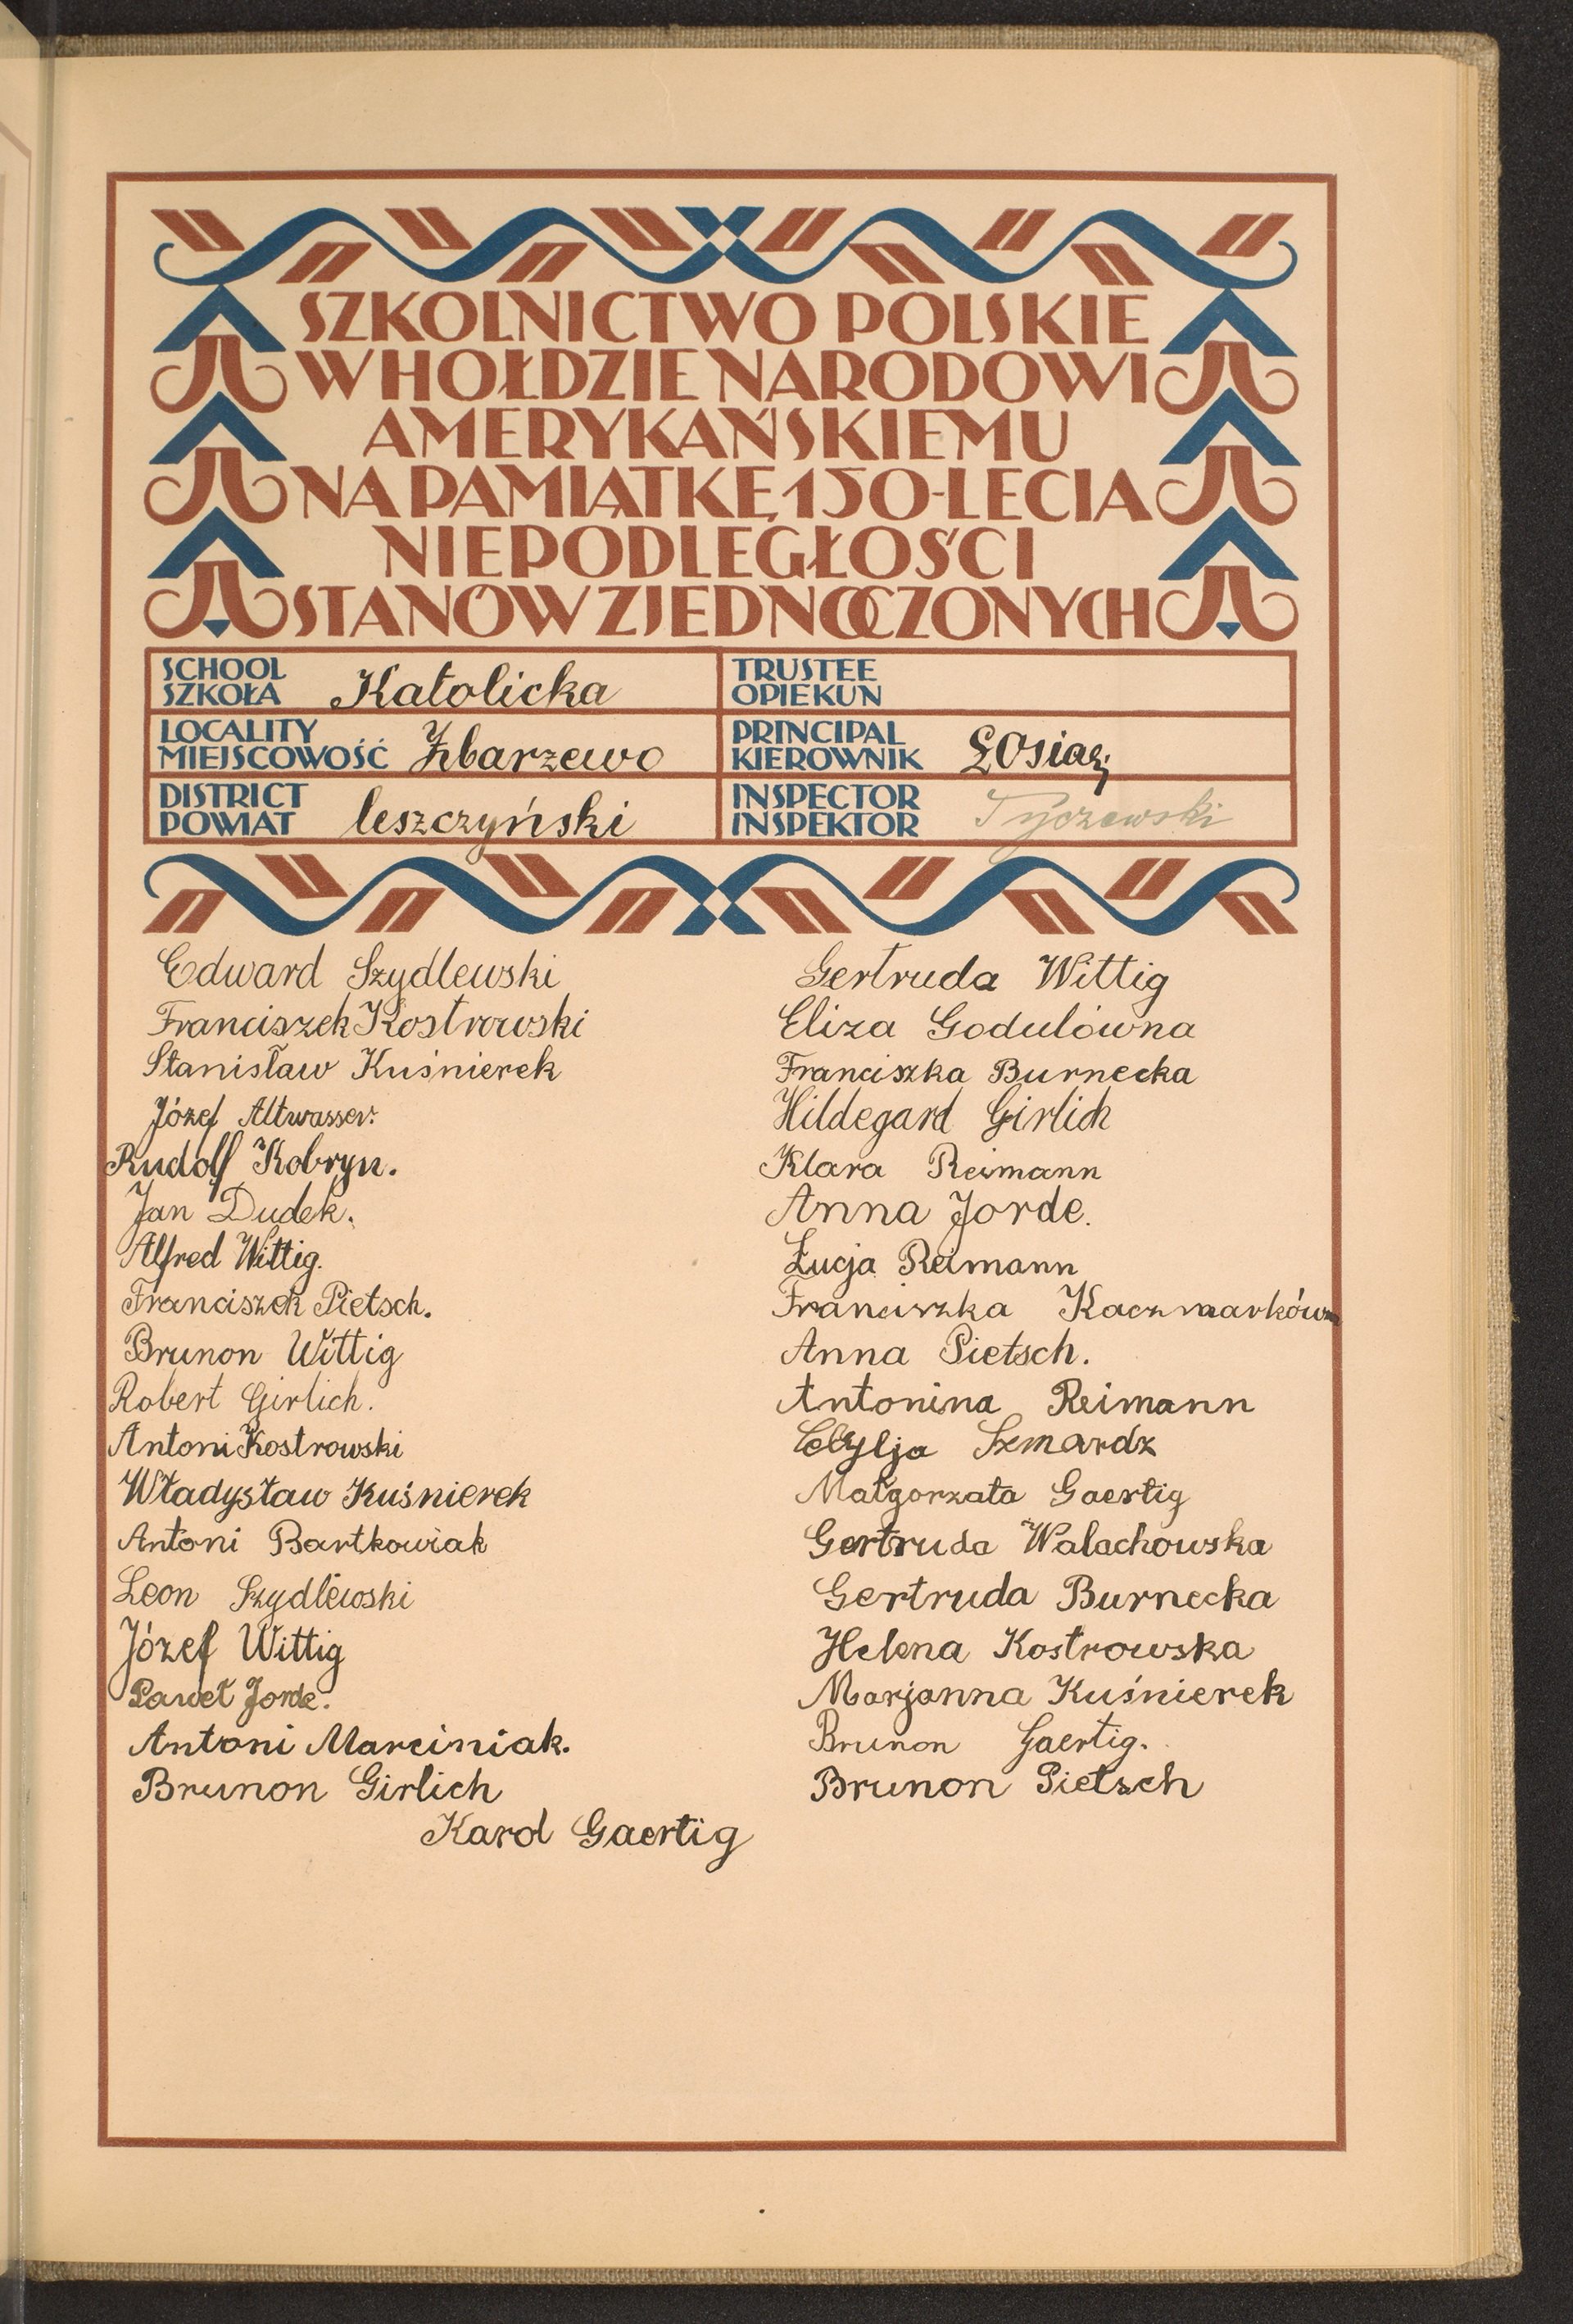 SZKOLNICTWO POLSKIE
W HOŁDZIE NARODOWI
AMERYKAŃSKIEMU
NA PAMIĄTKĘ 150-LECIA
NIEPODLEGŁOŚCI
STANÓW ZJEDNOCZONYCH
SCHOOL
SZKOŁA Katolicka
TRUSTEE
OPIEKUN
LOCALITY
MIEJSCOWOŚĆ Zbarzewo
PRINCIPAL
KIEROWNIK
DISTRICT
POWIAT leszczyński
INSPECTOR
INSPEKTOR Tyczewski
Edward Szydlewski
Franciszek Kostrowski
Stanisław Kuśnierek
Józef Altwasser.
Rudolf Kobryn.
Jan Dudek.
Alfred Wittig.
Franciszek Pietsch.
Brunon Wittig
Robert Girlich.
Antoni Kostrowski
Władysław Kuśnierek
Antoni Bartkowiak
Leon Szydlewski
Józef Wittig
Paweł Jorde.
Antoni Marciniak.
Brunon Girlich
Karol Gaertig
Gertruda Wittig
Eliza Godulówna
Franciszka Burnecka
Hildegard Girlich
Klara Reimann
Anna Jorde.
Łucja Reimann
Franciszka Kaczmarkówna
Anna Pietsch.
Antonina Reimann
Szmardz
Małgorzata Gaertig
Gertruda Walachowska
Gertruda Burnecka
Helena Kostrowska
Marjanna Kuśnierek
Brunon Gaertig.
Brunon Pietsch